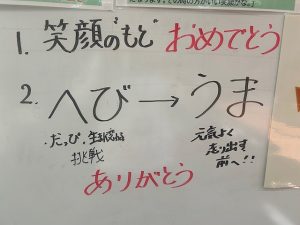 1. 笑顔の"もと" おめでとう
2. へび→うま
・だっぴ・生まれ変わる
挑戦
元気よく
走り出す
前へ!!
ありがとう